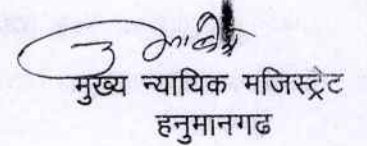 मुख्य न्यायिक मजिस्ट्रेट
हनुमानगढ